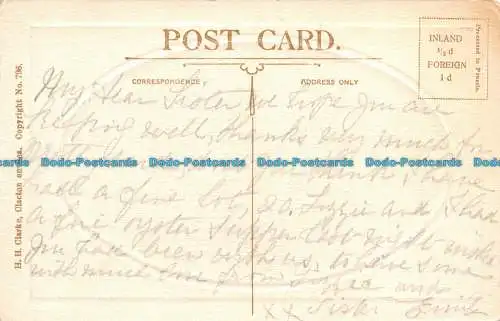 POST CARD.
CORRESPONDENCE
ADDRESS ONLY
INLAND
½d
FOREIGN
1d
H. H. Clarke, Clacton Copyright No. 796.
My Dear Sister we hope you are
keeping well, thanks very much for
think I have
a fine lot, 20. Lizzie and I had
a fine oyster supper last night wish
you had been with us, to have some
with much love from Lizzie and
x x Sister
Dodo-Postcards Dodo-Postcards Dodo-Postcards Dodo-Postcards Dodo-Postcards
Dodo-Postcards Dodo-Postcards Dodo-Postcards Dodo-Postcards Dodo-Postcards